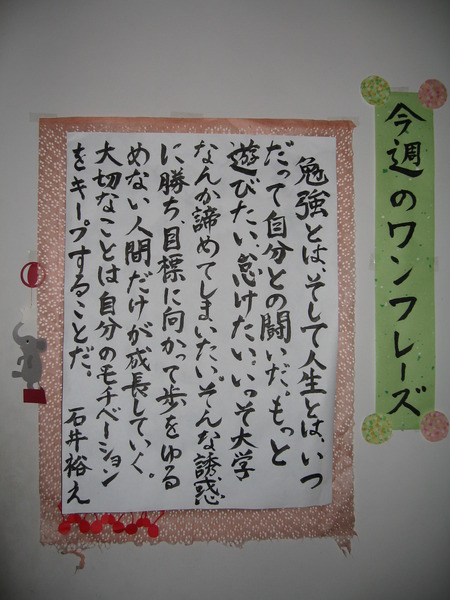 今週のワンフレーズ
勉強とは、そして人生とは、いつ
だって自分との闘いだ。もっと
遊びたい、怠けたい、いっそ大学
なんか諦めてしまいたい。そんな誘惑
に勝ち目標に向かって歩をゆる
めない人間だけが成長していく。
大切なことは自分のモチベーション
をキープすることだ。
石井裕え